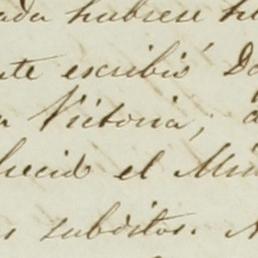 ada hubiese h
te escribió Do
a Victoria,
lecid el Min
s subditos.